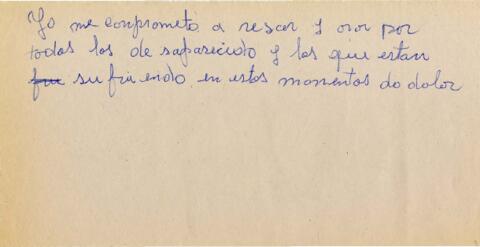 Yo me comprometo a resar y orar por
todos los de saparecido y los que estan
su friendo en estos momentos do dolor